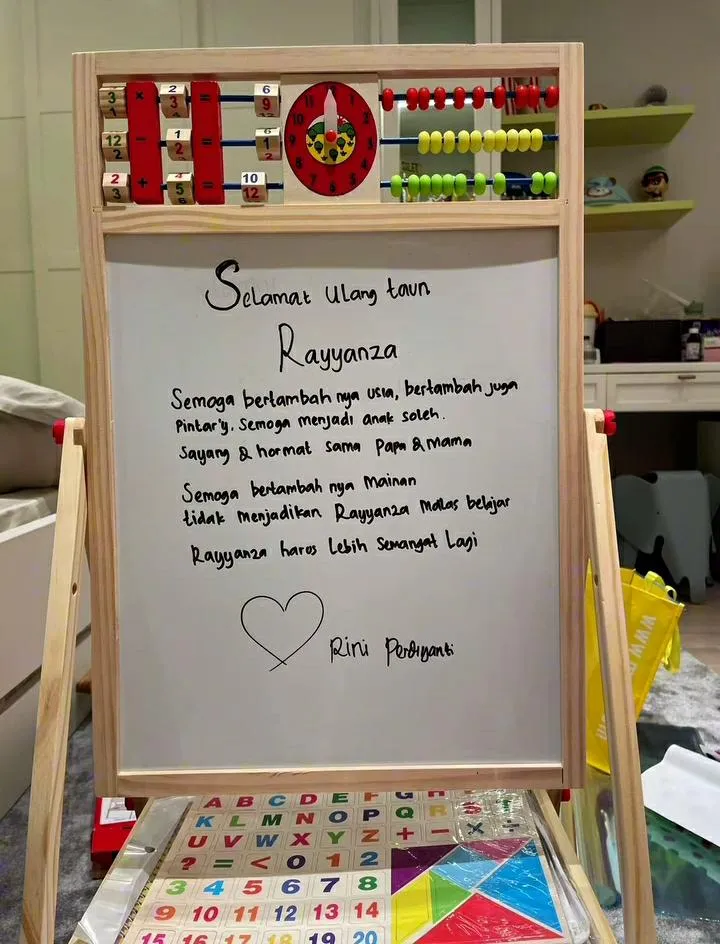 3 × 2 = 6
1 3 9
12 − 1 = 6
2 2 1
2 + 4 = 10
3 5 12
11 1
10
9
8
7 6 5
Selamat ulang taun
Rayyanza
Semoga bertambah nya usia, bertambah juga
Pintar'y. Semoga menjadi anak soleh.
Sayang & hormat sama Papa & mama
Semoga bertambah nya Mainan
tidak menjadikan Rayyanza Malas belajar
Rayyanza harus Lebih Semangat Lagi
Rini Perdiyanti
A B C D E F G H
K L M N O P Q R
U V W X Y Z + − × ÷
? = < 0 1 2
3 4 5 6 7 8
9 10 11 12 13 14
15 16 17 18 19 20